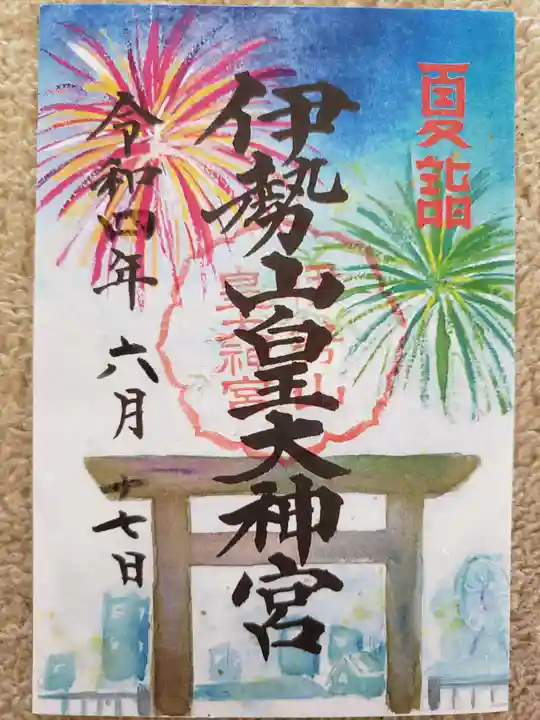 夏詣
伊勢山皇大神宮
令和四年 六月 十七日